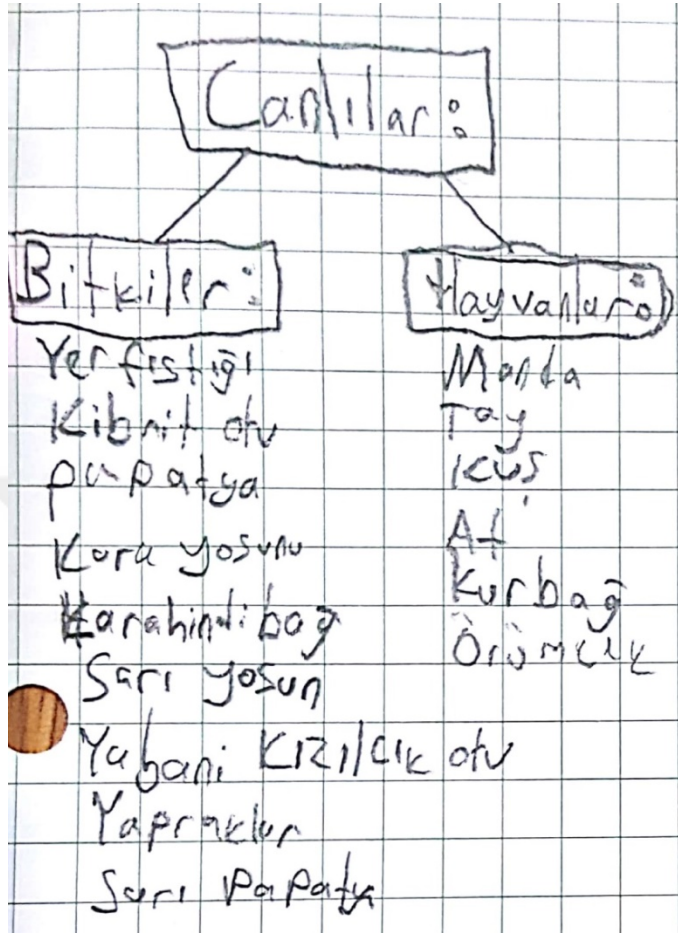 Canlılar:
Bitkiler:
Yer fıstığı
Kibrit otu
papatya
Kara yosunu
Karahindibağ
Sarı yosun
Yabani Kızılcık otu
Yapraklar
Sarı Papatya
Hayvanlar:
Manda
Tay
Kuş
At
Kurbağ
Örümcek